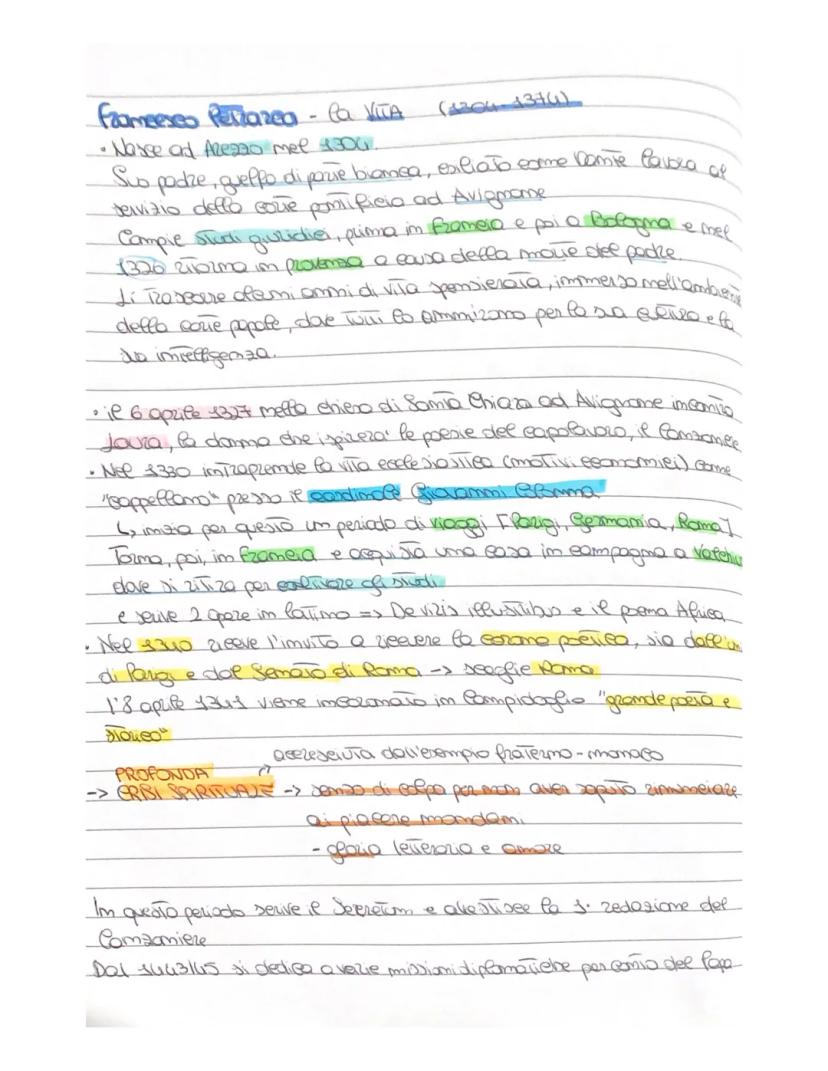 Francesco Petrarca - la VITA (1304-1374)
• Nasce ad Arezzo nel 1304.
Suo padre, guelfo di parte bianca, esiliato come Dante lavora al
servizio della corte pontificia ad Avignone
Compie studi giuridici, prima in Francia e poi a Bologna e nel
1326 ritorna in provenza a causa della morte del padre.
Li trascorre alcuni anni di vita spensierata, immerso nell'ambiente
della corte papale, dove tutti lo ammirano per la sua e la
sua intelligenza.
• il 6 aprile 1327 nella chiesa di Santa Chiara ad Avignone incontra
Laura, la donna che ispirera' le poesie del capolavoro, il Canzoniere
• Nel 1330 intraprende la vita ecclesiastica (motivi economici) come
"cappellano" presso il cardinale Giovanni Colonna
↳ inizia per questo un periodo di viaggi [Parigi, Germania, Roma]
Torna, poi, in Francia e acquista una casa in campagna a
dove si ritira per coltivare gli studi
e scrive 2 opere in latino => De viris illustribus e il poema Africa
• Nel 1340 riceve l'invito a ricevere la corona poetica, sia dall'
di Parigi e dal Senato di Roma -> sceglie Roma
l'8 aprile 1341 viene incoronato in Campidoglio "grande poeta e
storico"
accresciuta dall'esempio fraterno - monaco
PROFONDA
-> CRISI SPIRITUALE -> senso di colpa per non aver saputo rinunciare
ai piacere mondani
- gloria letteraria e amore
In questo periodo scrive il Secretum e allestisce la 1. redazione del
Canzoniere
Dal 1443/45 si dedica a varie missioni diplomatiche per conto del Papa